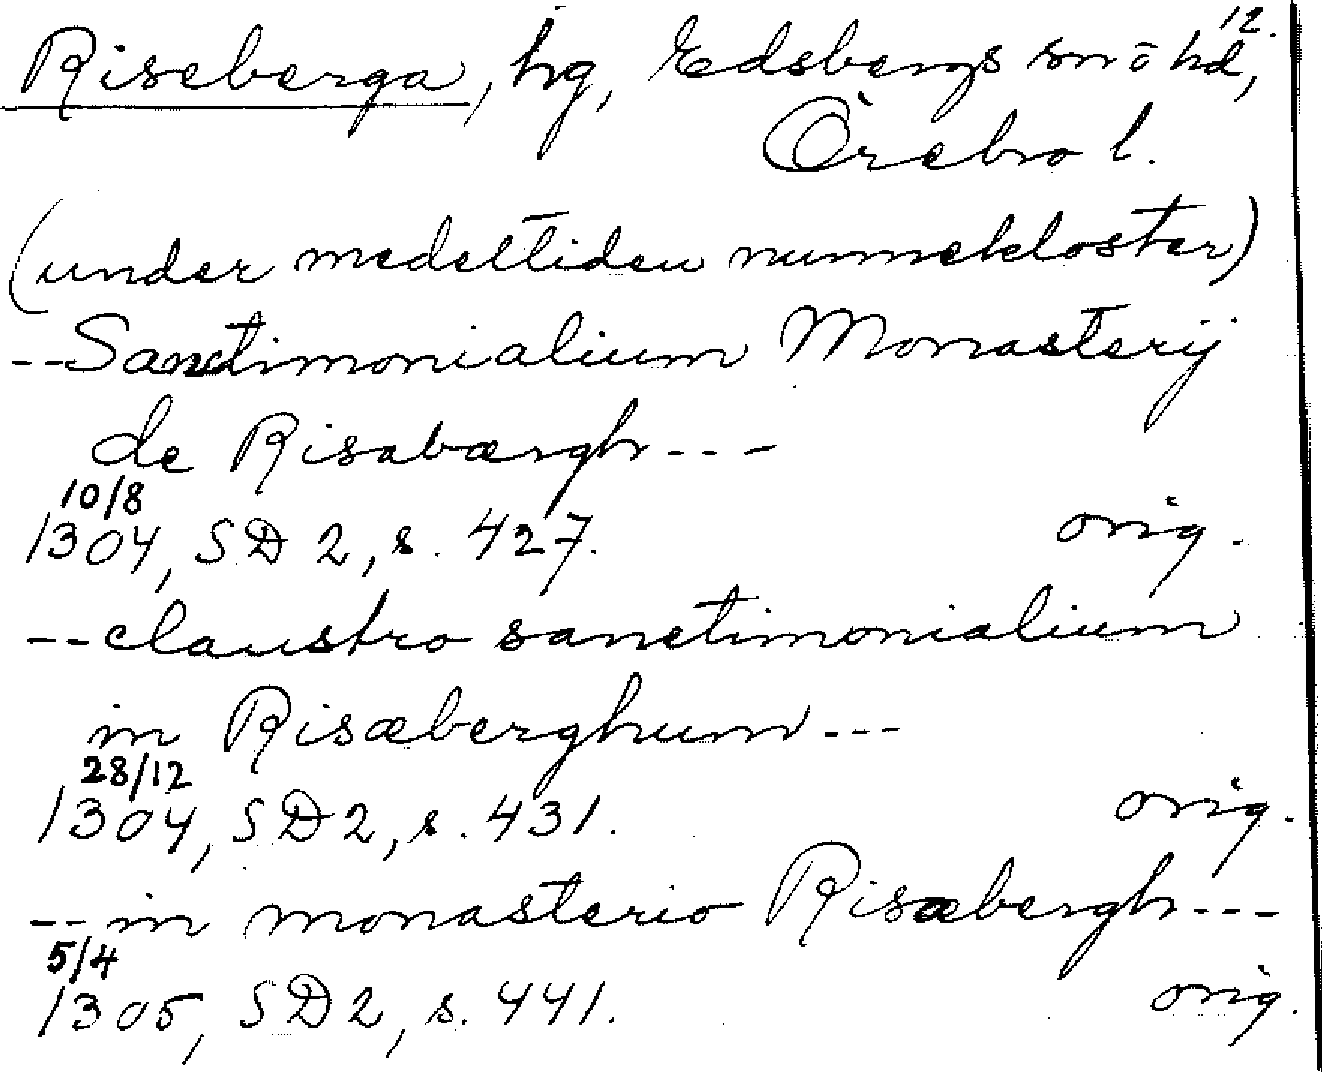 12.
Riseberga, hg, Edsbergs sn o hd,
Örebro l.
(under medeltiden nunnekloster)
--Sanctimonialium Monasterij
de Risabærgh---
10/8
1304, SD 2, s. 427. orig.
--claustro sanctimonialium
in Risæberghum---
28/12
1304, SD 2, s. 431. orig.
--in monasterio Risæbergh---
5/4
1305, SD 2, s. 441. orig.